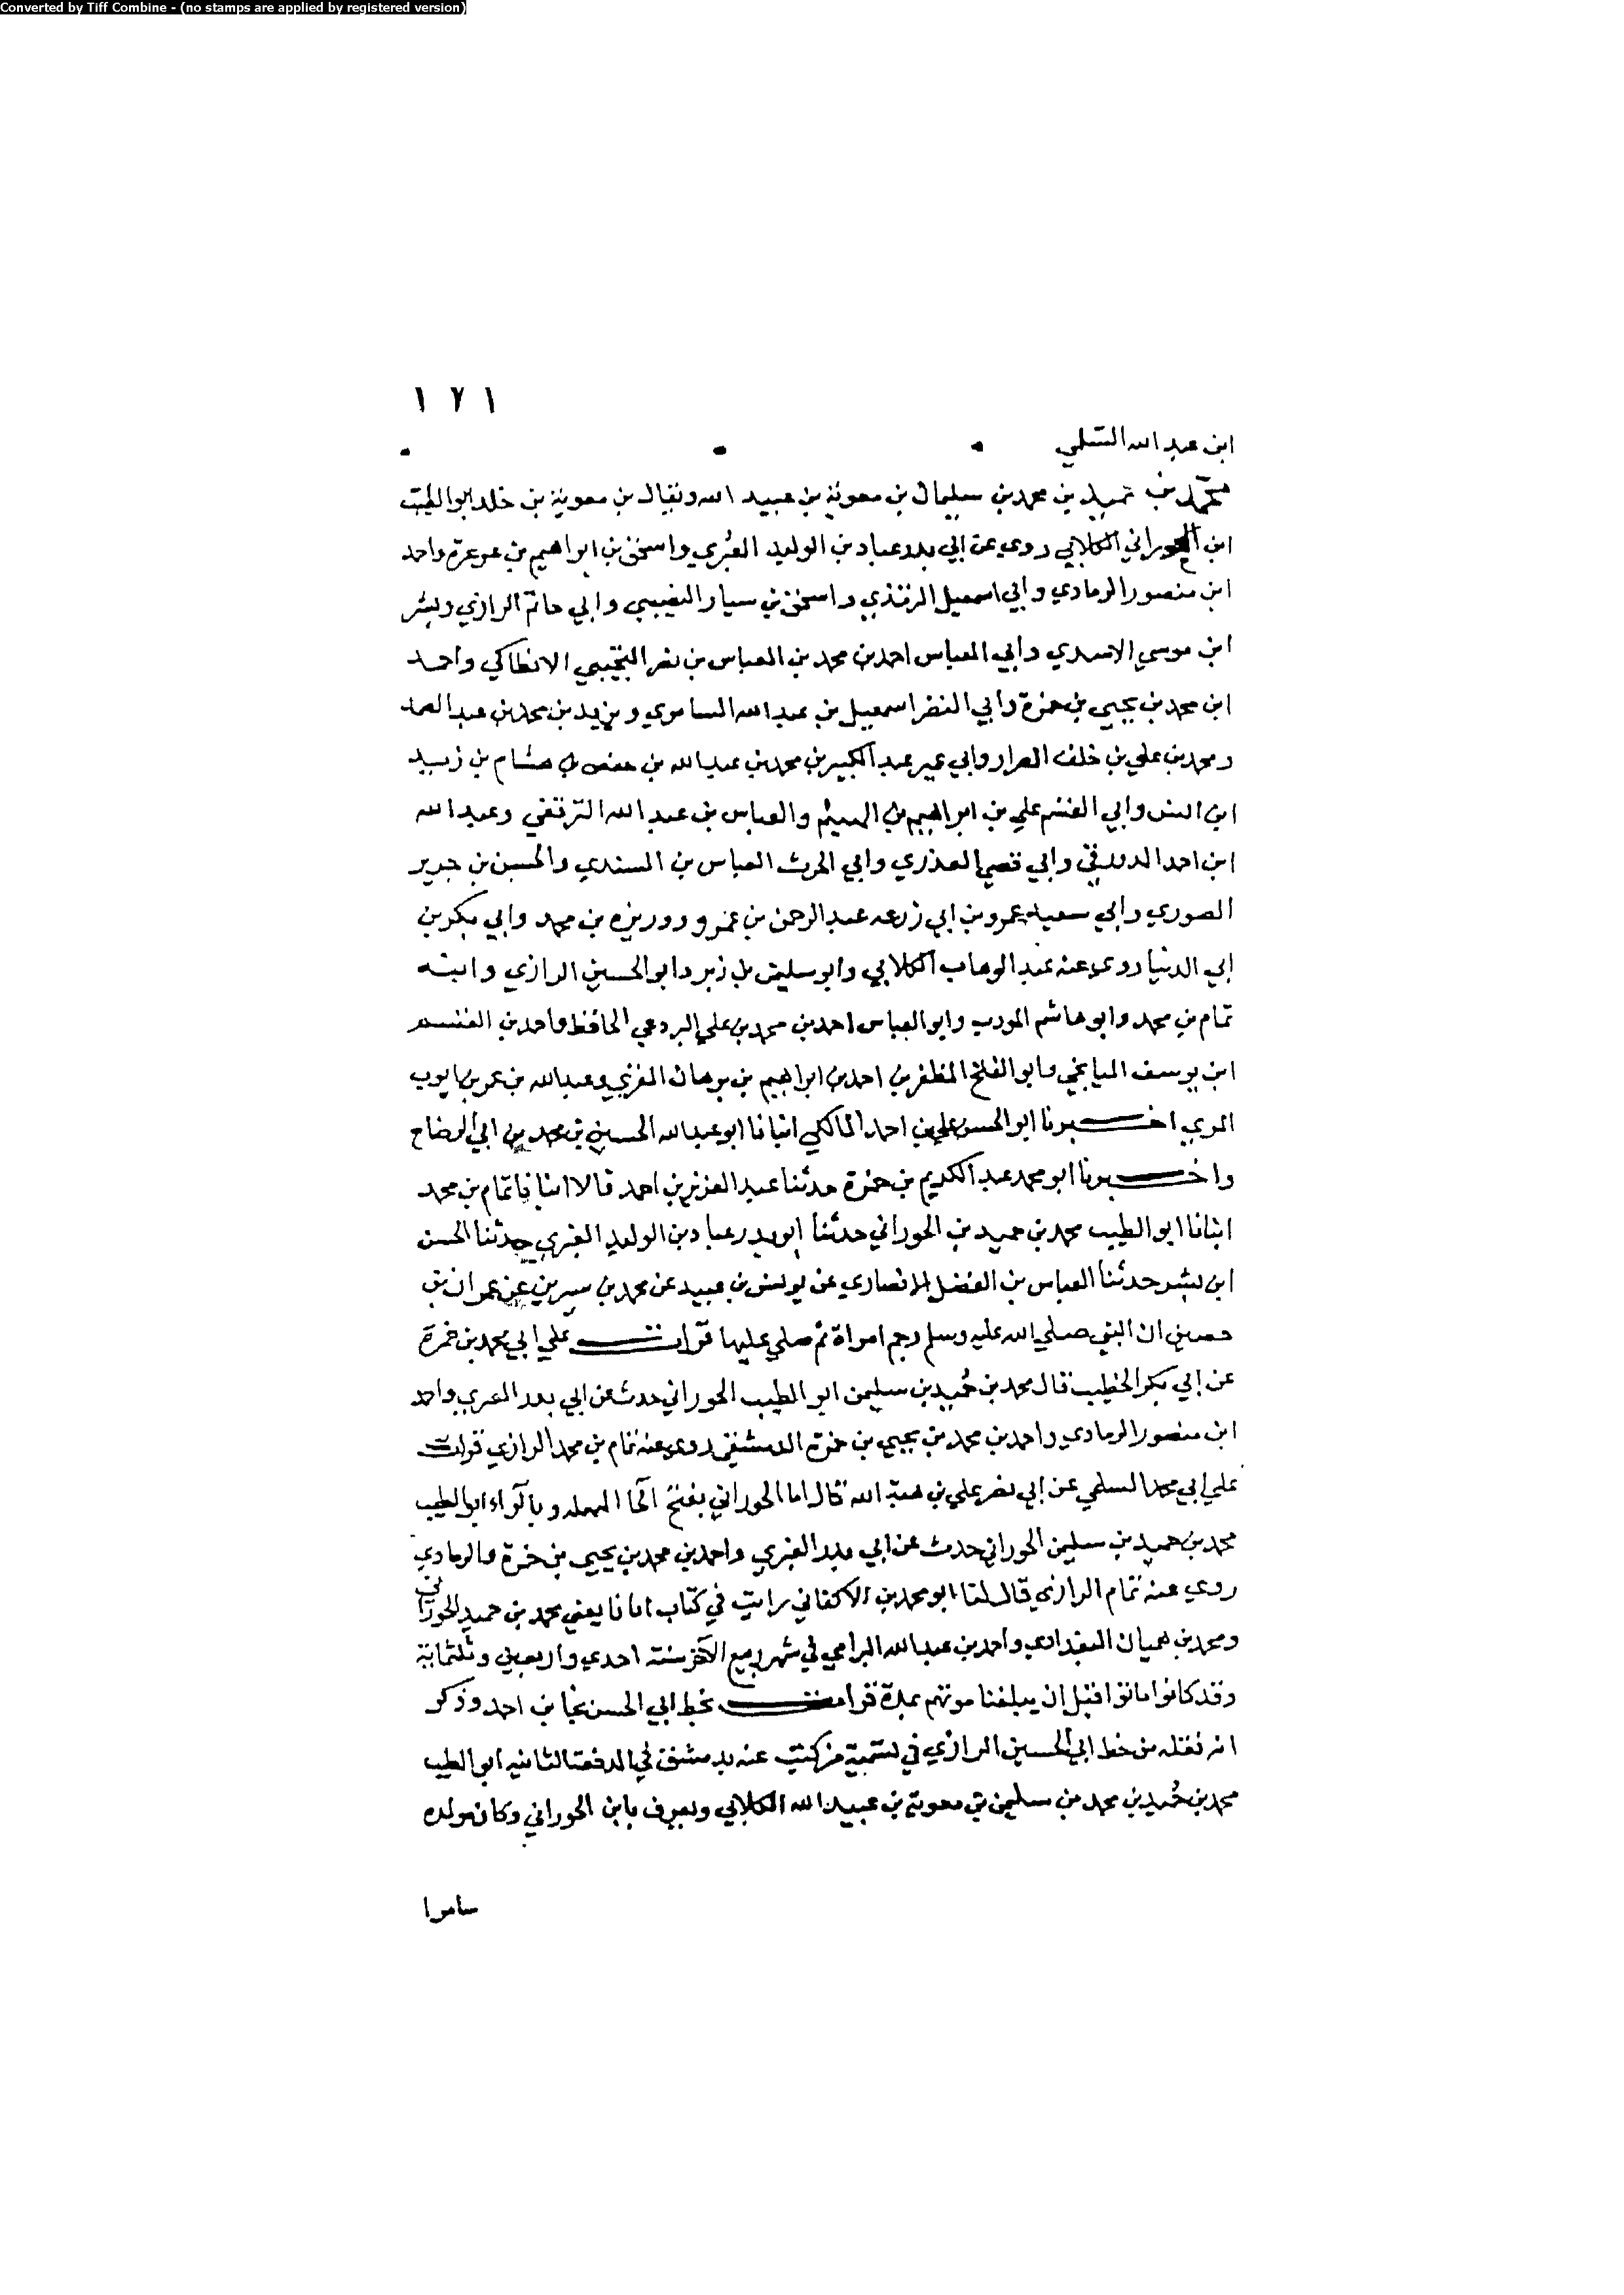 Converted by Tiff Combine - (no stamps are applied by registered version)
١٧١
ابن عبد الله السلمي
محمد بن حميد بن محمد بن سليمان بن معوية بن عبيد الله ويقال بن معوية بن خلد ابو الطيب
ابن الحوراني الكلابي روى عن ابي بدر عباد بن الوليد الغبري واسحق بن ابراهيم بن عرعرة واحمد
ابن منصور الرمادي وابي اسمعيل الترمذي واسحق بن سيار النصيبي وابي حاتم الرازي وبشر
ابن موسى الاسدي وابي العباس احمد بن محمد بن العباس بن نصر التجيبي الانطاكي واحمد
ابن محمد بن يحيى بن حمزة وابي النضر اسمعيل بن عبد الله السامري ويزيد بن محمد بن عبد الصمد
ومحمد بن علي بن خلف الصرار وابي عمير عبد الكبير بن محمد بن عبد الله بن حفص بن هشام بن زيد
ابن انس وابي القسم علي بن ابراهيم بن الهيثم والعباس بن عبد الله الترقفي وعبد الله
ابن احمد الدورقي وابي قصي العذري وابي الحرث العباس بن السندي والحسن بن جرير
الصوري وابي سعيد عمرو بن ابي زرعه عبد الرحمن بن عمرو ووريزه بن محمد وابي بكر بن
ابي الدنيا روى عنه عبد الوهاب الكلابي وابو سليمن بن زبر وابو الحسين الرازي وابنه
تمام بن محمد وابو هاشم المودب وابو العباس احمد بن محمد بن علي البردعي الحافظ واحمد بن القسم
ابن يوسف الميانجي وابو الفتح المظفر بن احمد بن ابراهيم بن برهان المقري وعبد الله بن عمر بن ايوب
المري اخبرنا ابو الحسن علي بن احمد المالكي انبانا ابو عبد الله الحسين بن محمد بن ابي الرضاح
واخبرنا ابو محمد عبد الكريم بن حمزة حدثنا عبد العزيز بن احمد قالا انبانا تمام بن محمد
انبانا ابو الطيب محمد بن حميد بن الحوراني حدثنا ابو بدر عباد بن الوليد الغبري حدثنا الحسن
ابن بشر حدثنا العباس بن الفضل الانصاري عن يونس بن عبيد عن محمد بن سيرين عن عمران بن
حصين ان النبي صلي الله عليه وسلم رجم امراة ثم صلي عليها قرات علي ابي محمد بن حمزة
عن ابي بكر الخطيب قال محمد بن حُميد بن سليمن ابو الطيب الحوراني حدث عن ابي بدر الغبري واحمد
ابن منصور الرمادي واحمد بن محمد بن يحيى بن حمزة الدمشقي روى عنه تمام بن محمد الرازي قرات
علي ابي محمد السلمي عن ابي نصر علي بن هبة الله قال اما الحوراني بفتح الحا المهمله وبالراء ابو الطيب
محمد بن حميد بن سليمن الحوراني حدث عن ابي بدر الغبري واحمد بن محمد بن يحيى بن حمزة والرمادي
روى عنه تمام الرازي قال لنا ابو محمد بن الاكفاني رايت في كتاب يعني محمد بن حميد الحوراني
ومحمد بن هميان البغدادي واحمد بن عبد الله البرامي في شهر ربيع الاخر سنة احدي واربعين وثلثماية
وقد كانوا ماتوا قبل ان يبلغنا موتهم بمدة قرات بخط ابي الحسن نجا بن احمد وذكر
انه نقله من خط ابي الحسين الرازي في تسمية من كتب عنه بدمشق في الدفعة الثانيه ابو الطيب
محمد بن حُميد بن محمد بن سليمن بن معوية بن عبيد الله الكلابي ويعرف بابن الحوراني وكان مولده
سامرا